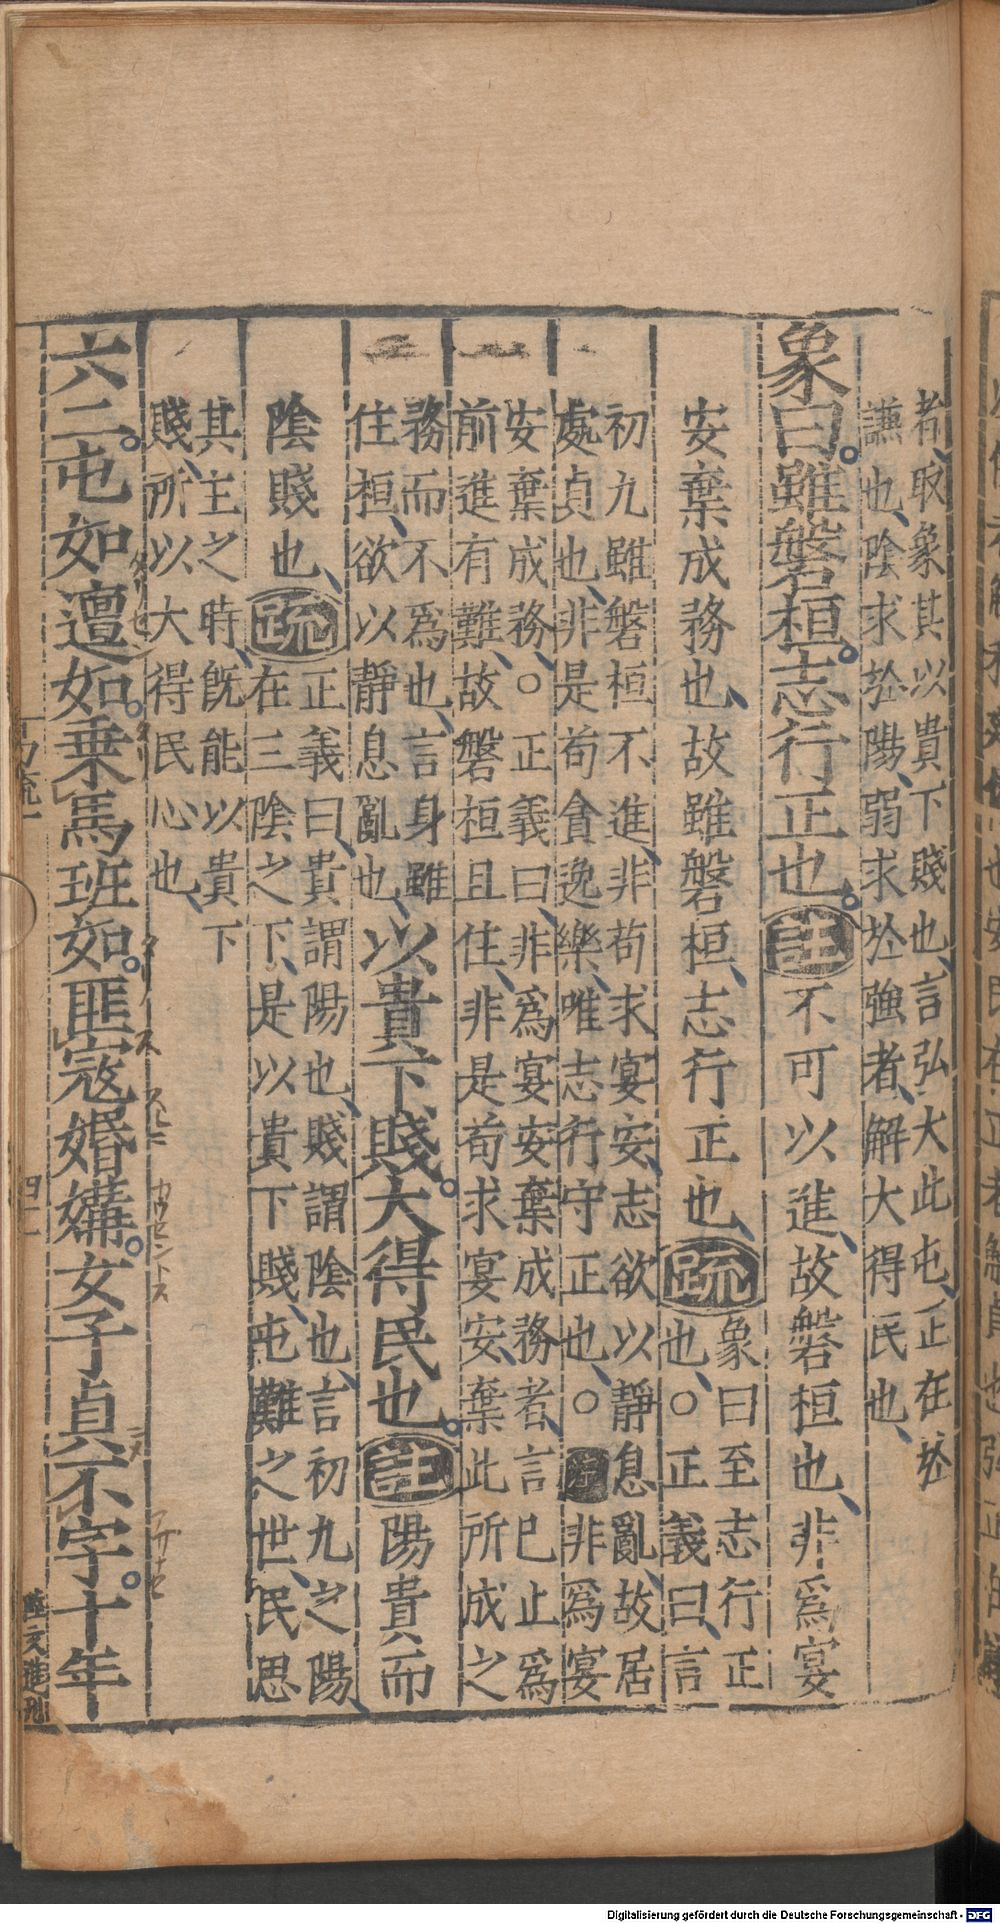 者、取象其以貴下賤也、言弘大此屯、正在於
謙也、陰求於陽、弱求於強者、解大得民也、
象曰。雖磐桓。志行正也。註不可以進、故磐桓也、非爲宴
安棄成務也、故雖磐桓、志行正也、疏
象曰至志行正
也、○正義曰、言
初九雖磐桓不進、非苟求宴安、志欲以靜息亂、故居
處貞也、非是苟貪逸樂、唯志行守正也、○註非爲宴
安棄成務、○正義曰、非爲宴安棄成務者、言已止爲
前進有難、故磐桓且住、非是苟求宴安、棄此所成之
務而不爲也、言身雖
住桓、欲以靜息亂也、
以貴下賤。大得民也。註陽貴而
陰賤也、疏
正義曰、貴謂陽也、賤謂陰也、言初九之陽、
在三陰之下、是以貴下賤、屯難之世、民思
其主之時、旣能以貴下
賤、所以大得民心也、
六二。屯如邅如。乗馬班如。匪寇婚媾。女子貞不字。十年
易疏一
四二
陸文進刋
Digitalisierung gefördert durch die Deutsche Forschungsgemeinschaft - DFG